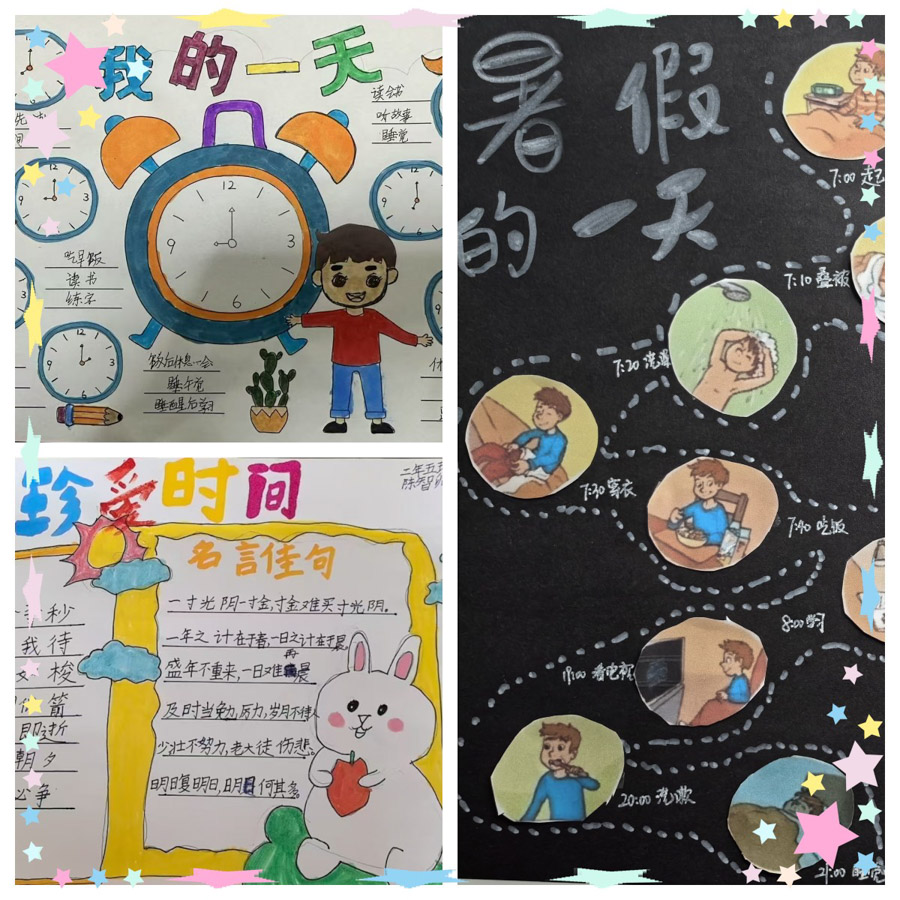 我的一天
读全书
听故事
睡觉
12
3
6
9
吃早饭
读书
练字
饭后休息一会
睡午觉
睡醒后学习
珍爱时间
二年五
名言佳句
一寸光阴一寸金,寸金难买寸光阴。
一年之计在于春,一日之计在于晨。
盛年不重来,一日难再晨
及时当勉力,岁月不待人
少壮不努力,老大徒伤悲。
明日复明日,明日何其多
秒
我待
梭
箭
即逝
朝夕
必争
暑假
的一天
7:00 起
7:10 叠被
7:20 洗澡
7:30 穿衣
7:40 吃饭
8:00 学习
19:00 看电视
20:00 洗漱
21:00 睡觉